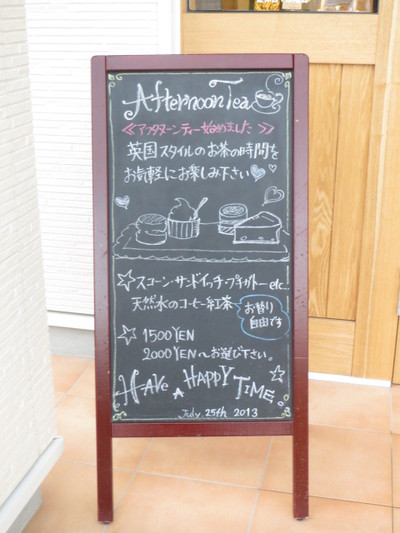 Afternoon Tea
≪アフタヌーンティー始めました≫
英国スタイルのお茶の時間を
お気軽にお楽しみ下さい
☆スコーン・サンドイッチ・プチガトー etc...
天然水のコーヒー紅茶
お替り
自由です
☆1500YEN
2000YEN〜お選び下さい。
HAVE A HAPPY TIME...
July 25th 2013